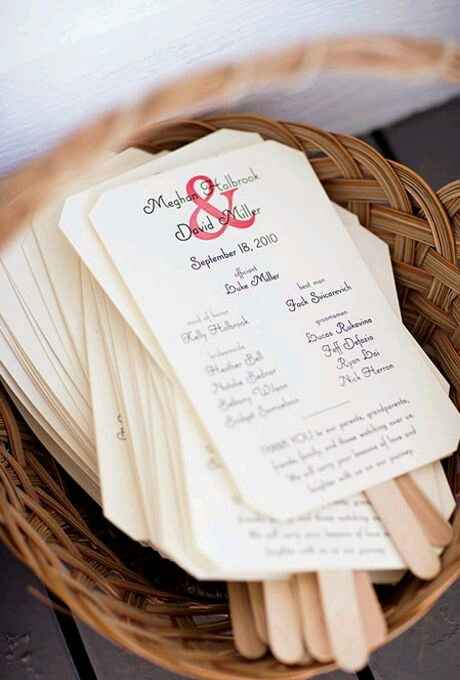 Meghan Holbrook
&
David Miller
September 18, 2010
officiant
Luke Miller
maid of honor
Kelly Holbrook
bridesmaids
Heather Bell
Natalie Batner
Bethany Wilson
Bridget Samuelson
best man
Jack Svicarevich
groomsmen
Lucas Rukavina
Jeff Defazio
Ryan Dai
Nick Herron
THANK YOU to our parents, grandparents,
friends, family, and those watching over us.
We will carry your lessons of love and
laughter with us on our journey.
and those watching over
We will carry your lessons of love
laughter with us on our